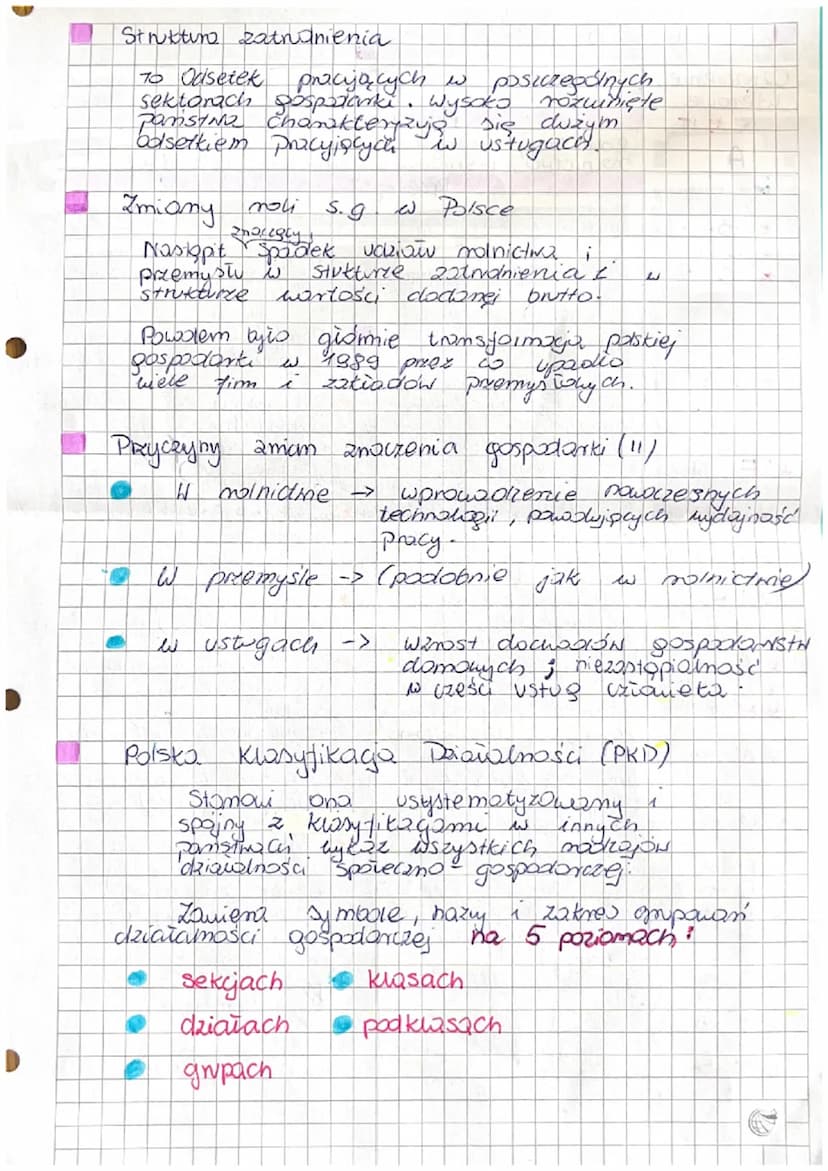 Struktura zatrudnienia
To Odsetek pracujących w poszczególnych
sektorach gospodarki. Wysoko rozwinięte
państwa charakteryzują się dużym
odsetkiem pracujących w usługach.
Zmiany roli s.g. w Polsce
znaczący
Nastąpił spadek udziału rolnictwa i
przemysłu w stukturze zatrudnienia i w
strukturze wartości dodanej brutto.
Powodem było głównie transformacja polskiej
gospodarki w 1989 przez co upadło
wiele firm i zakładów przemysłowych.
Przyczyny zmian znaczenia gospodarki (!!)
W rolnictwie -> wprowadzenie nowoczesnych
technologii, powodujących wydajność
pracy.
W przemyśle -> (podobnie jak w rolnictwie)
w usługach -> wzrost dochodów gospodarstw
domowych ; niezastąpialność
w części usług człowieka.
Polska Klasyfikacja Działalności (PKD)
Stanowi ona usystematyzowany i
spójny z klasyfikacjami w innych
państwach wykaz wszystkich rodzajów
działalności społeczno-gospodarczej.
Zawiera symbole, nazwy i zakres grupowań
działalności gospodarczej na 5 poziomach:
sekcjach klasach
działach podklasach
grupach